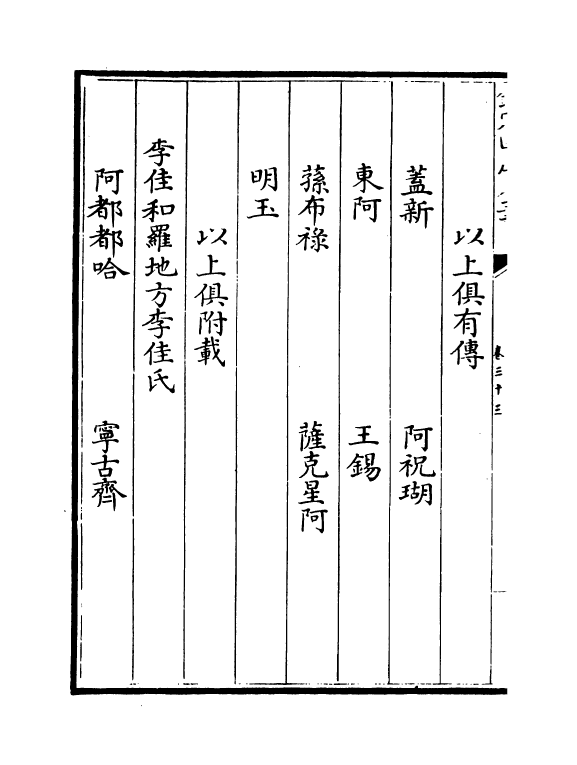 卷三十三
以上俱有傳
蓋新 阿祝瑚
東阿 王錫
蓀布祿 薩克星阿
明玉
以上俱附載
李佳和羅地方李佳氏
阿都都哈 寧古齊